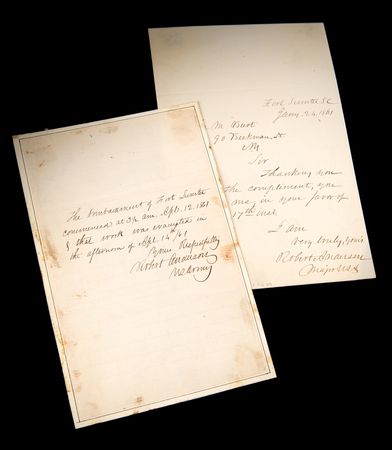 The bombardment of Fort Sumter
commenced at 3½ am. Apl. 12. 1861
& that work was evacuated in
the afternoon of Apl. 14th/61
Yours Respectfully
Robert Anderson
US Army
Fort Sumter SC
Jany. 24. 1861
M Burt
90 Beekman St
NY
Sir
Thanking you
the compliment, you
me, in your favor of
17th inst.
I am
very truly, yours
Robert Anderson
Major USA